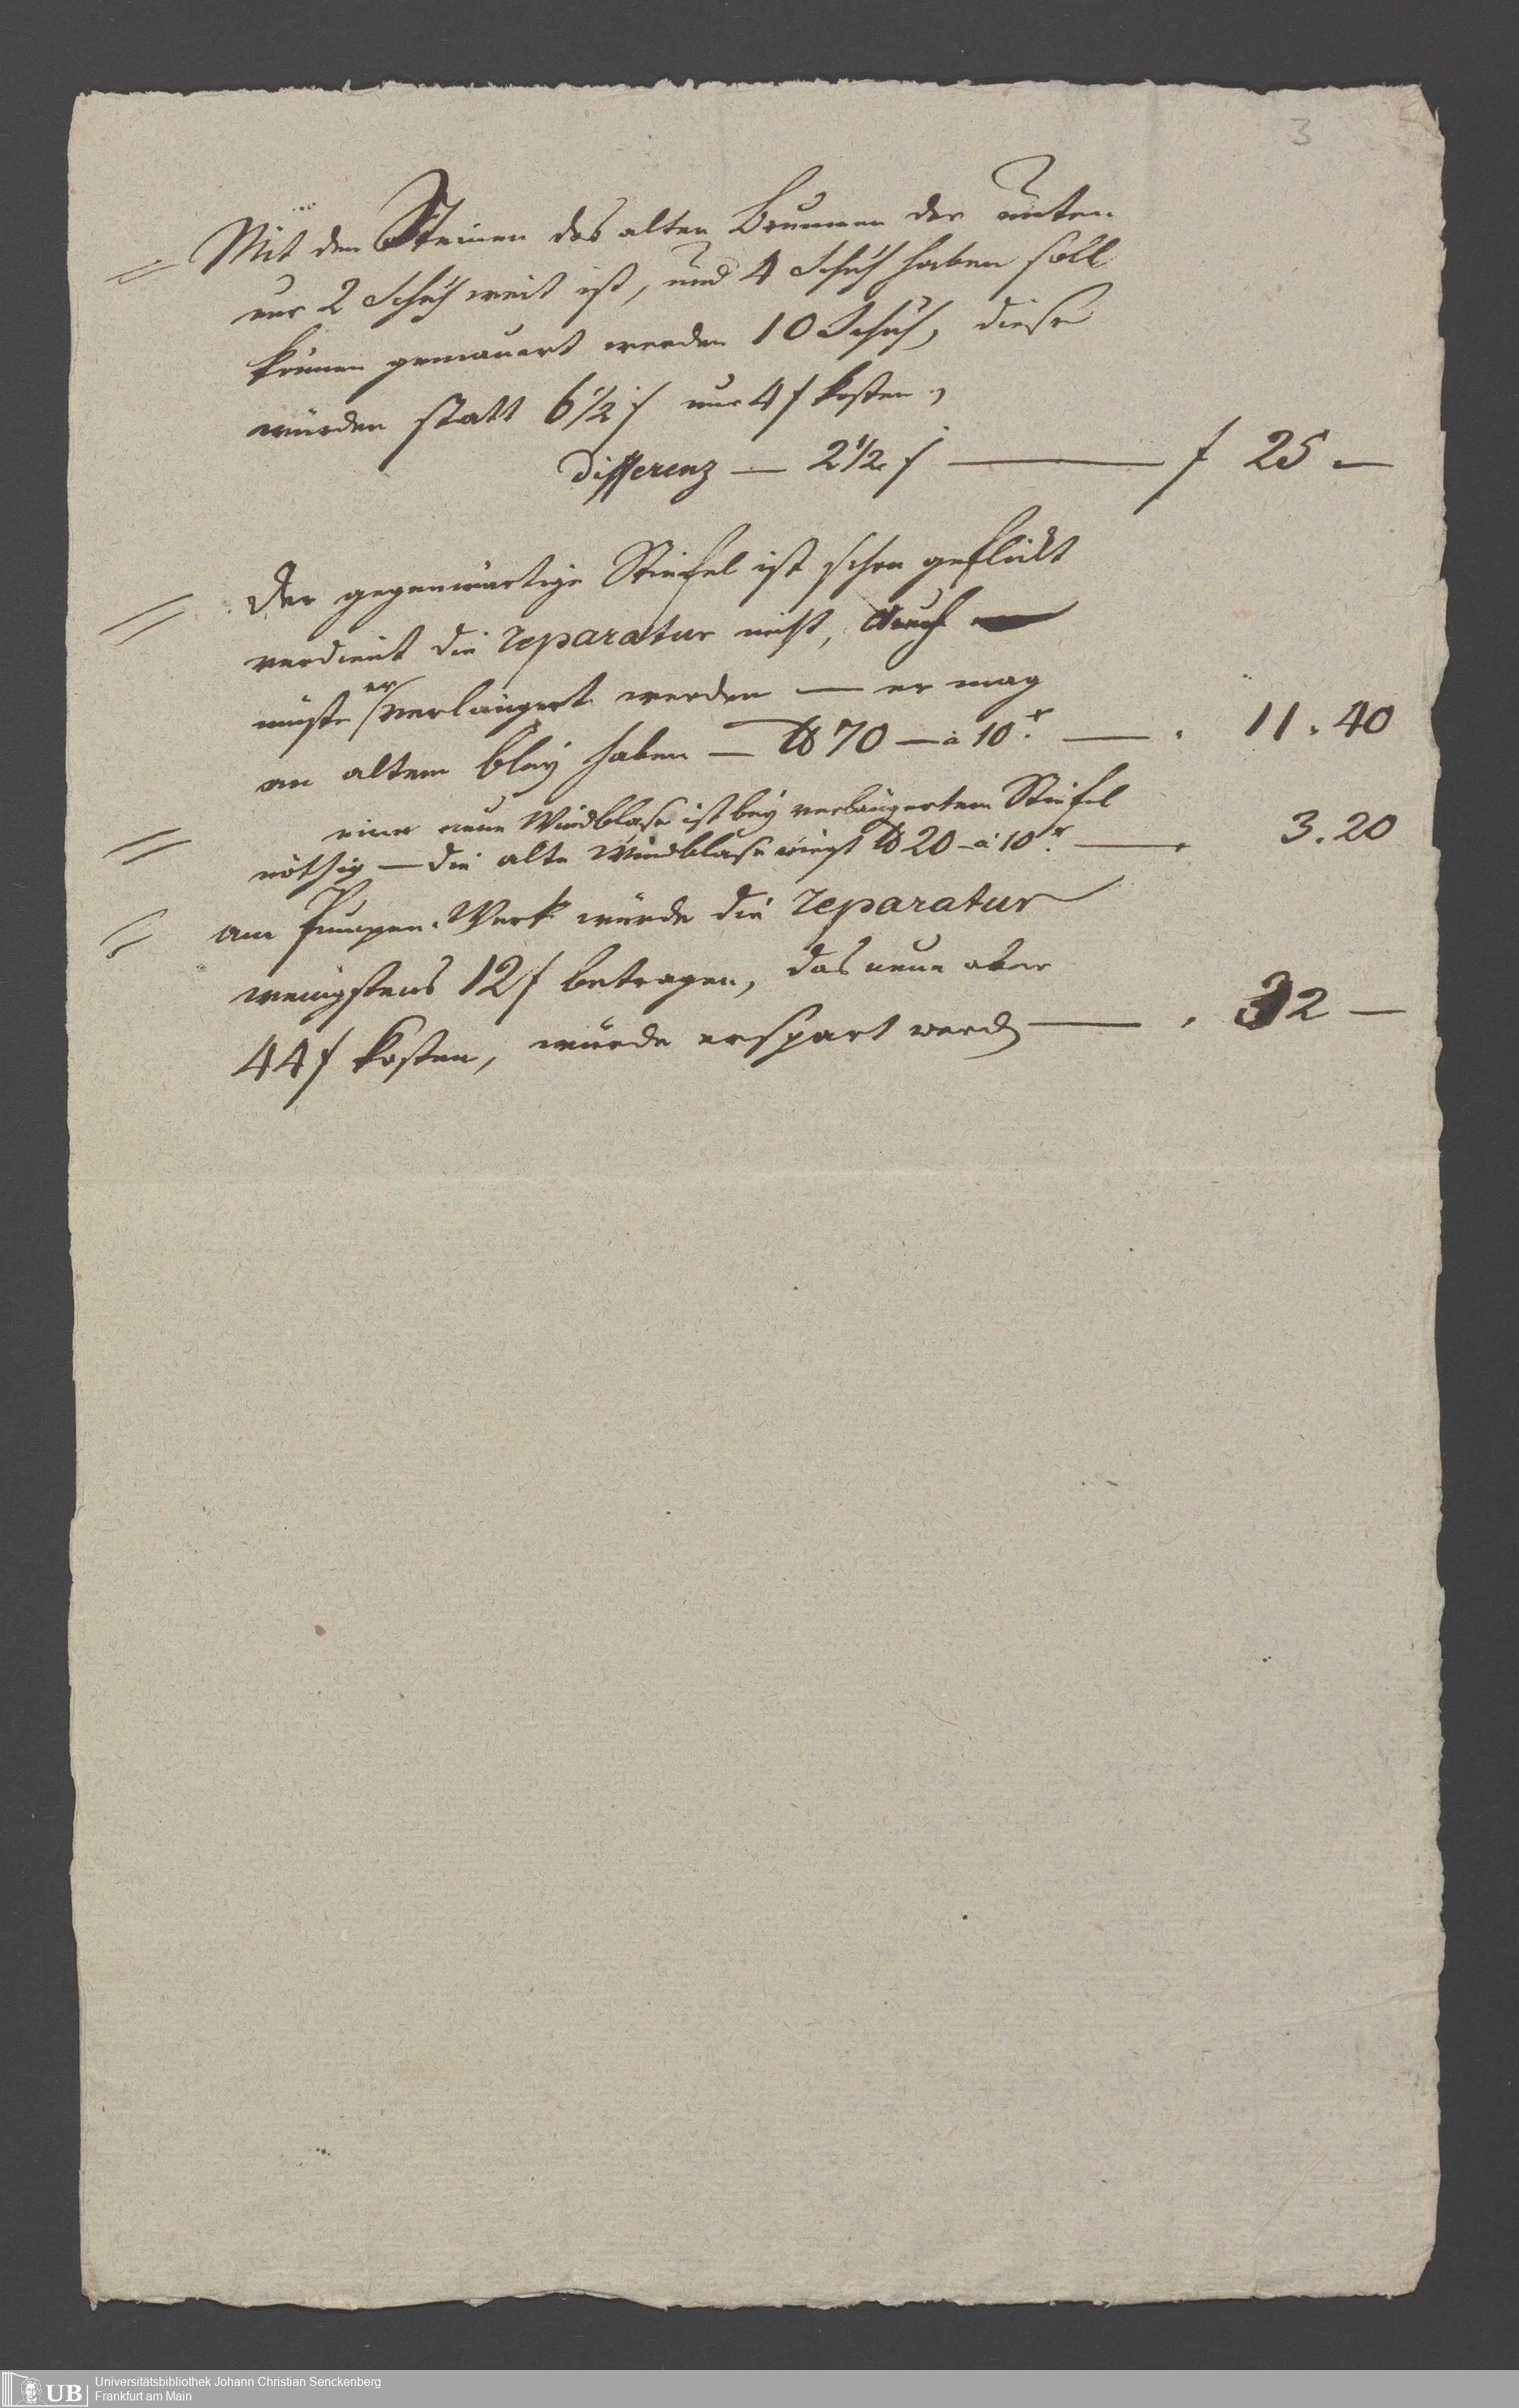 3
Mit den Steinen des alten Brunnen der unten
nur 2 Schuh weit ist, und 4 Schuh haben soll
können gemauert werden 10 Schuh, diese
würden statt 6 1/2 f nur 4 f kosten,
Differenz — 2 1/2 f — f 25 —
Der gegenwärtige Stiefel ist schon geflickt
verdient die reparatur nicht, Auch
müste er verlängert werden — er mag
an altem Bley haben — ℔ 70 — à 10 xr — . 11 . 40
eine neue Windblase ist bey verlängertem Stiefel
nöthig — die alte Windblase wiegt ℔ 20 — à 10 xr — . 3 . 20
am Pumpen-Werk würde die reparatur
wenigstens 12 f betragen, das neue aber
44 f kosten, würde erspart werden — . 32 —
UB
Universitätsbibliothek Johann Christian Senckenberg
Frankfurt am Main